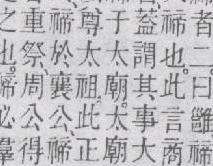 者二曰雝禘
禘也此言商
蓋謂其事大
于太廟太廟
尊太祖此正
禘於襄公禘
重祭周公得
之也禘必羣